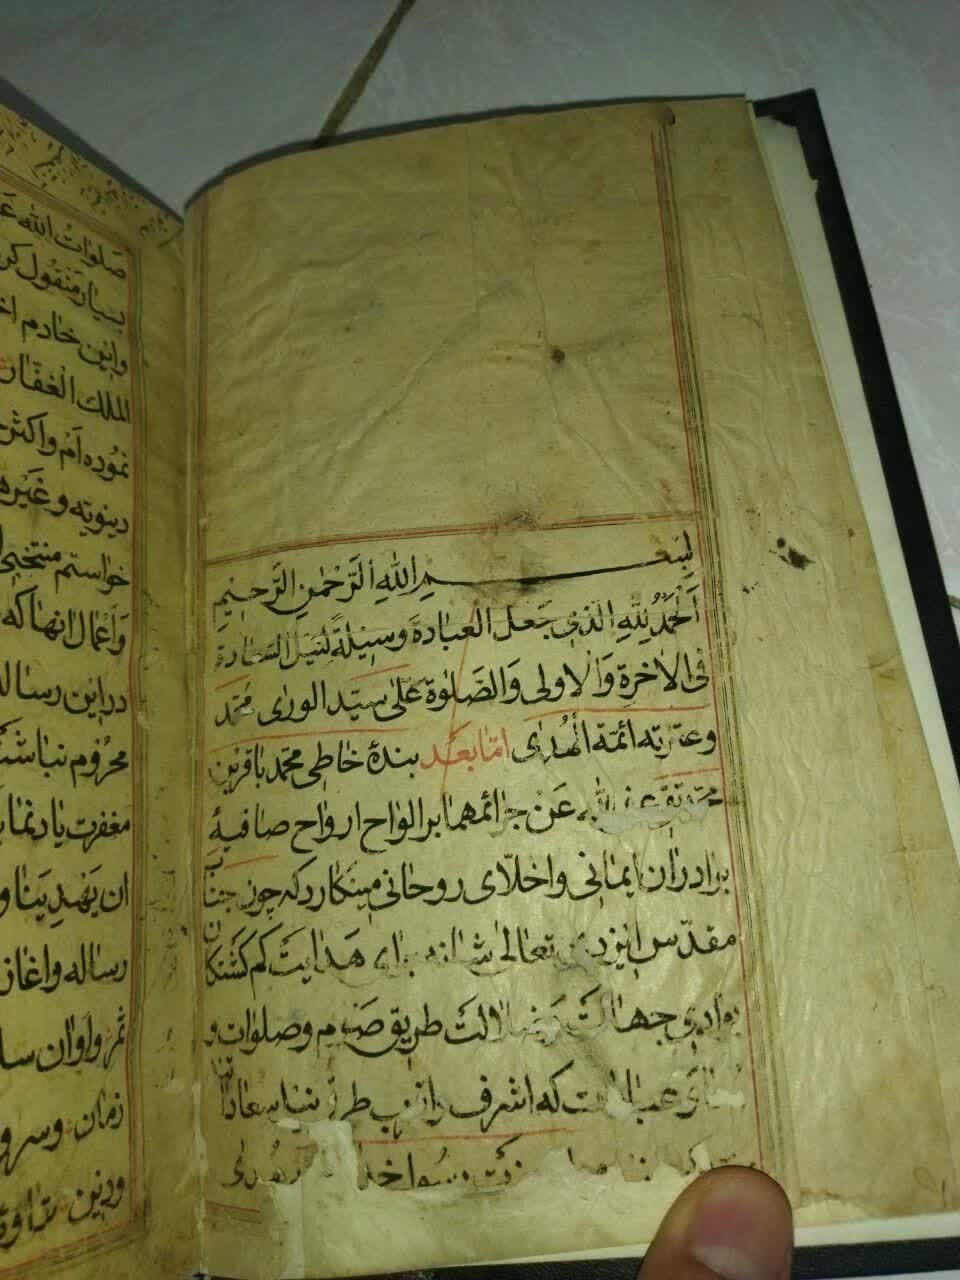 بِسْمِ اللهِ الرَّحْمٰنِ الرَّحیٖمِ
اَلْحَمْدُ لِلّٰهِ الَّذی جَعَلَ الْعِبادَةَ وَسیٖلَةً لِنَیْلِ السَّعٰادَةِ
فِی الْاٰخِرَةِ وَالْاُولٰی وَالصَّلٰوةُ عَلٰی سَیِّدِ الْوَرٰی مُحَمَّد
وعترته ائمة الهُدٰی امّا بعَد بندهٔ خاطی محمد باقر بن
محمد تقی عفی الله عَنْ جرٰائمهما بر الوٰاح ارواح صٰافیهٔ
برادرٰان ایمٰانی و اخلّای روحٰانی مینکٰارد که چون جنٰاب
مقدّس ایزدی تعٰالیٰ شٰانه برای هدٰایت کم کشتکٰان
بوٰادی جهٰالت و ضلالت طریق صَوم و صلوٰات و
که اشرف و اقرب طرق
خدا هُدٰی
صَلوٰات الله عَ
بسیٰار منقول کر
وٰاین خٰادم اخ
الملك الغفّار
نموُده اَم و اکثر
دینویّه و غَیره
خوٰاستم منتخبی
وَاَعمٰال انهٰا که
درٰاین رسٰاله
محرُوم نبٰاشند
مغفرت یٰاد نمٰا
ان یَهْدِیَنٰا و
رسٰاله و اغٰاز
ثمر و اَوٰان سٰا
زمٰان و سرو
ودین